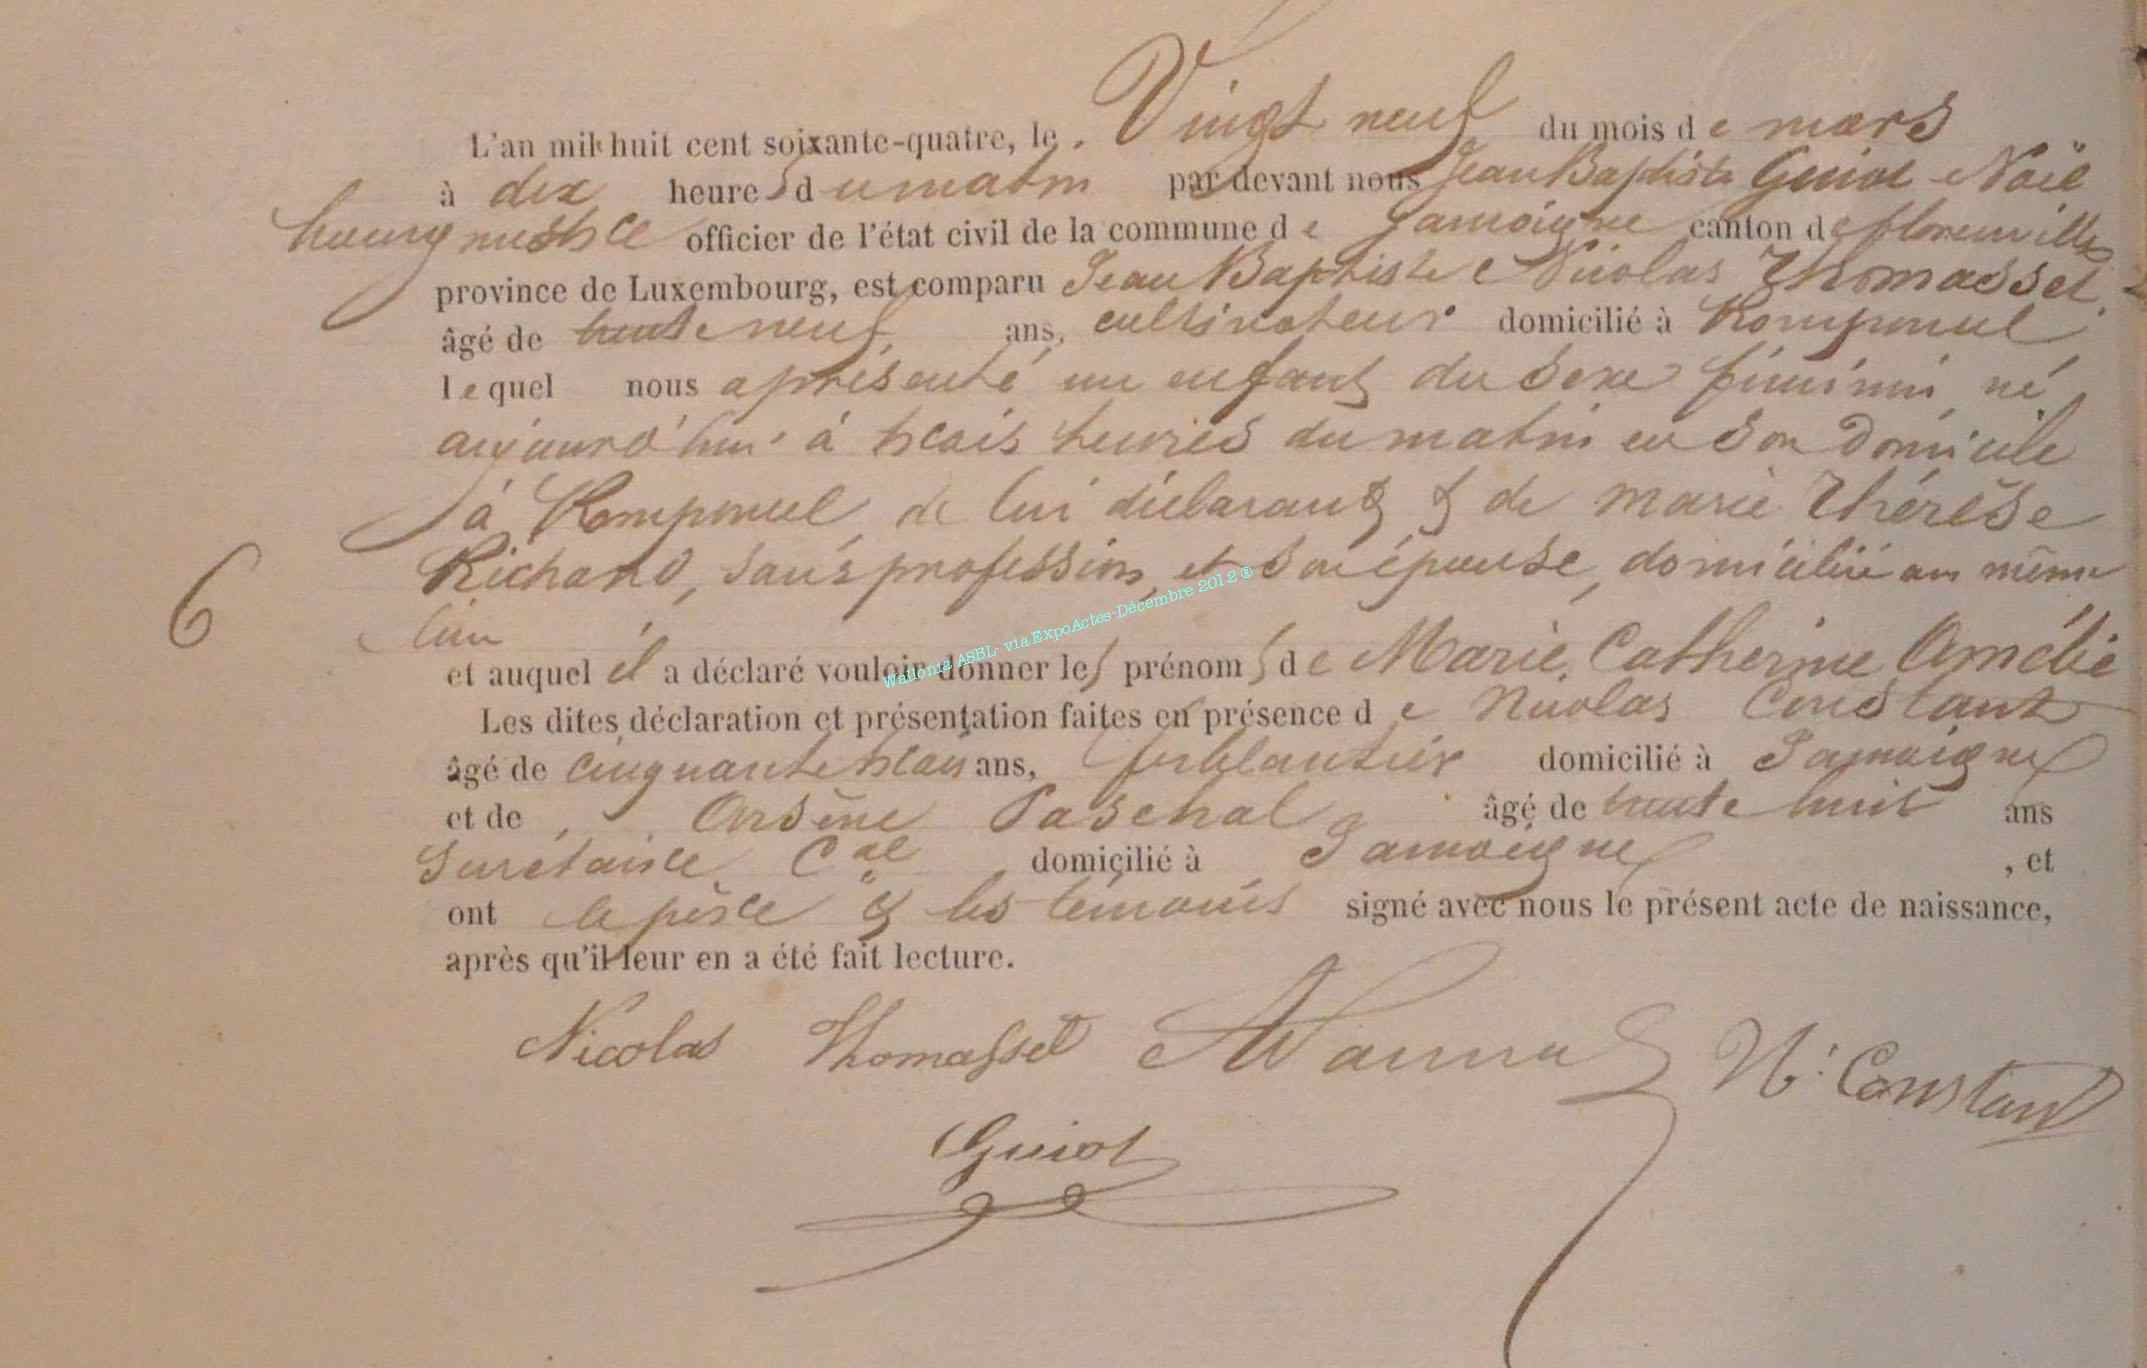 L'an mil huit cent soixante-quatre, le Vingt neuf du mois de mars
à dix heures du matin par devant nous Jean Baptiste Guiot Noël
bourgmestre officier de l'état civil de la commune de Jamoigne canton de florenville
province de Luxembourg, est comparu Jean Baptiste Nicolas Thomasset
âgé de trente neuf ans, cultivateur domicilié à Romponcel
lequel nous a présenté un enfant du sexe féminin né
aujourd'hui à trois heures du matin en son domicile
à Romponcel, de lui déclarant & de marie Thérèse
Richard, sans profession, et son épouse, domiciliée au même
lieu
6
et auquel il a déclaré vouloir donner les prénoms de Marie, Catherine Amélie
Les dites déclaration et présentation faites en présence de Nicolas Constant
âgé de cinquante trois ans, ferblantier domicilié à Jamoigne
et de Arsène Paschal âgé de trente huit ans
Secrétaire Cal domicilié à Jamoigne, et
ont le père & les témoins signé avec nous le présent acte de naissance,
après qu'il leur en a été fait lecture.
Nicolas Thomasset N. Constant
Guiot
Wallonia ASBL- via ExpoActes-Décembre 2012 ®